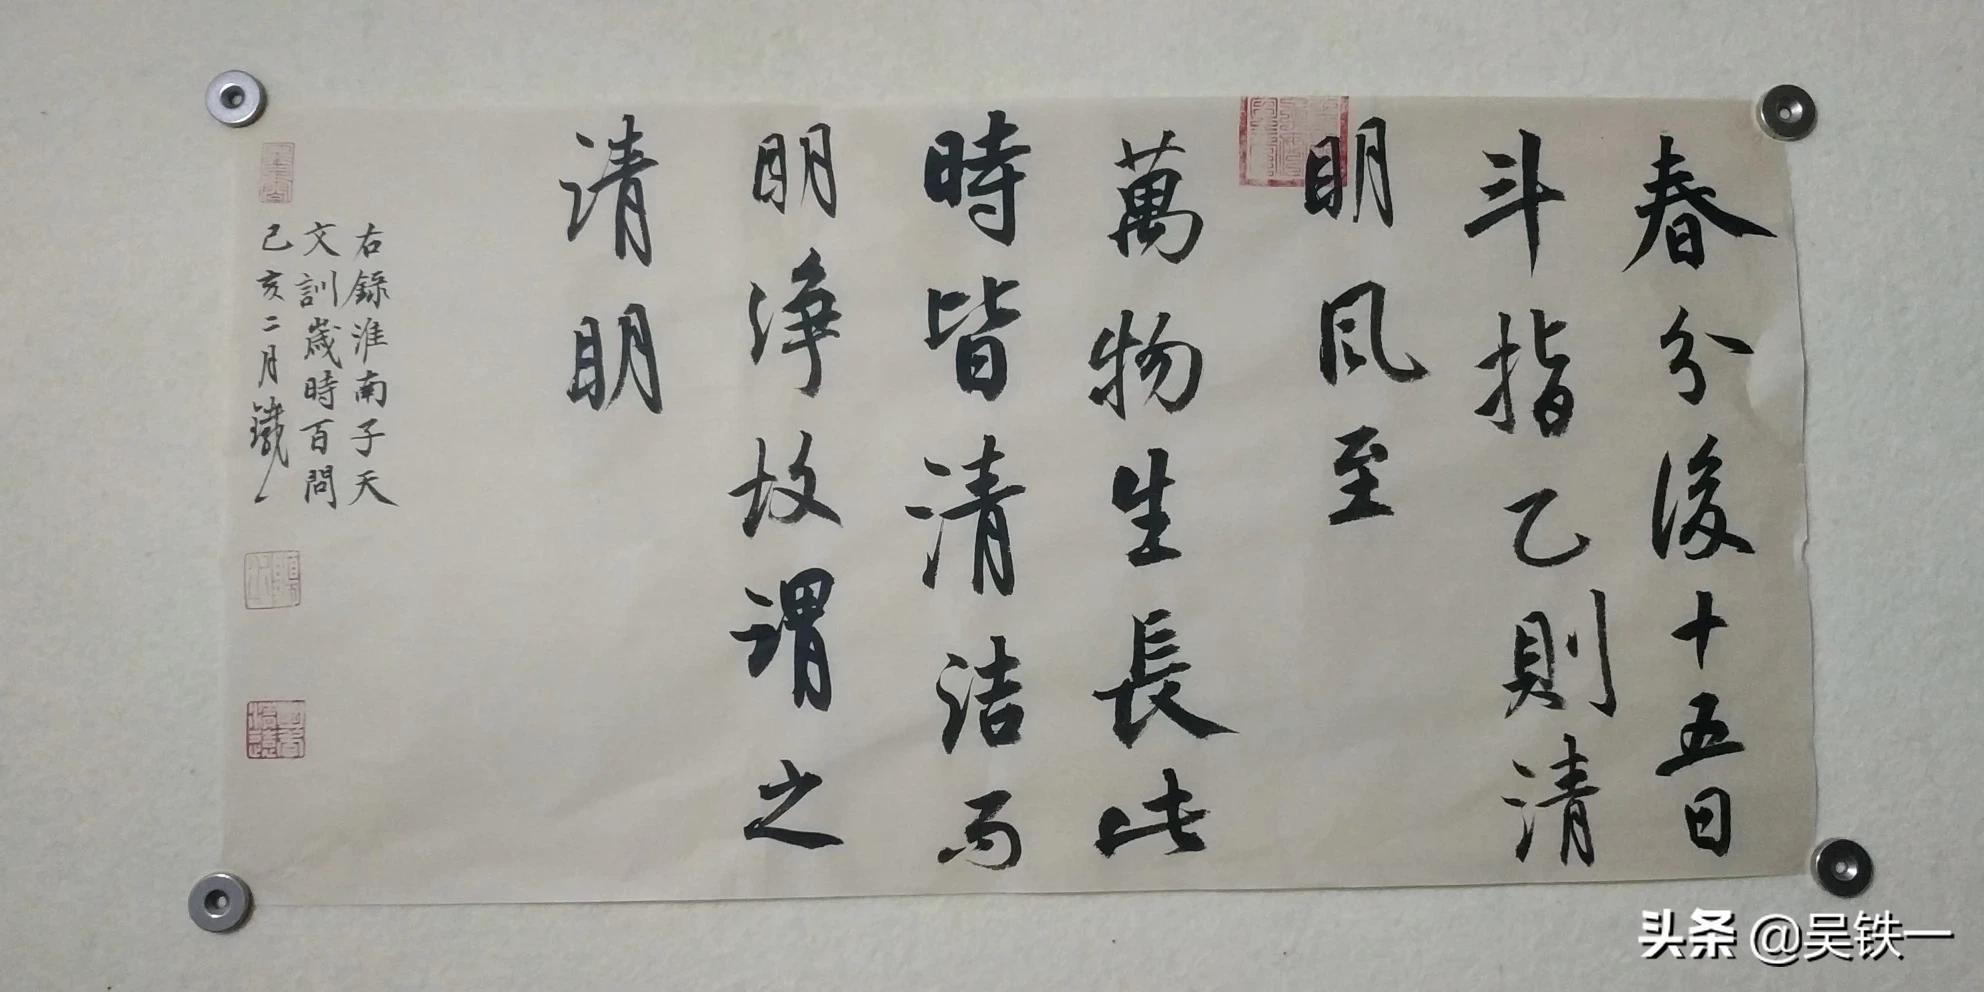 春分後十五日
斗指乙則清
明風至
萬物生長此
時皆清洁而
明净故謂之
清明
右錄淮南子天
文訓歲時百問
己亥二月鐵一
头条 @吴铁一